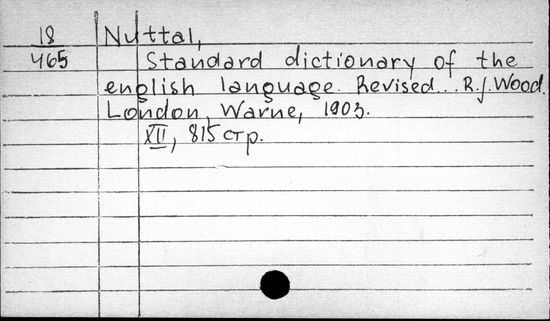 18 Nuttal,
465 Standard dictionary of the
english language. Revised... R.J. Wood.
London, Warne, 1903.
XII, 815 стр.